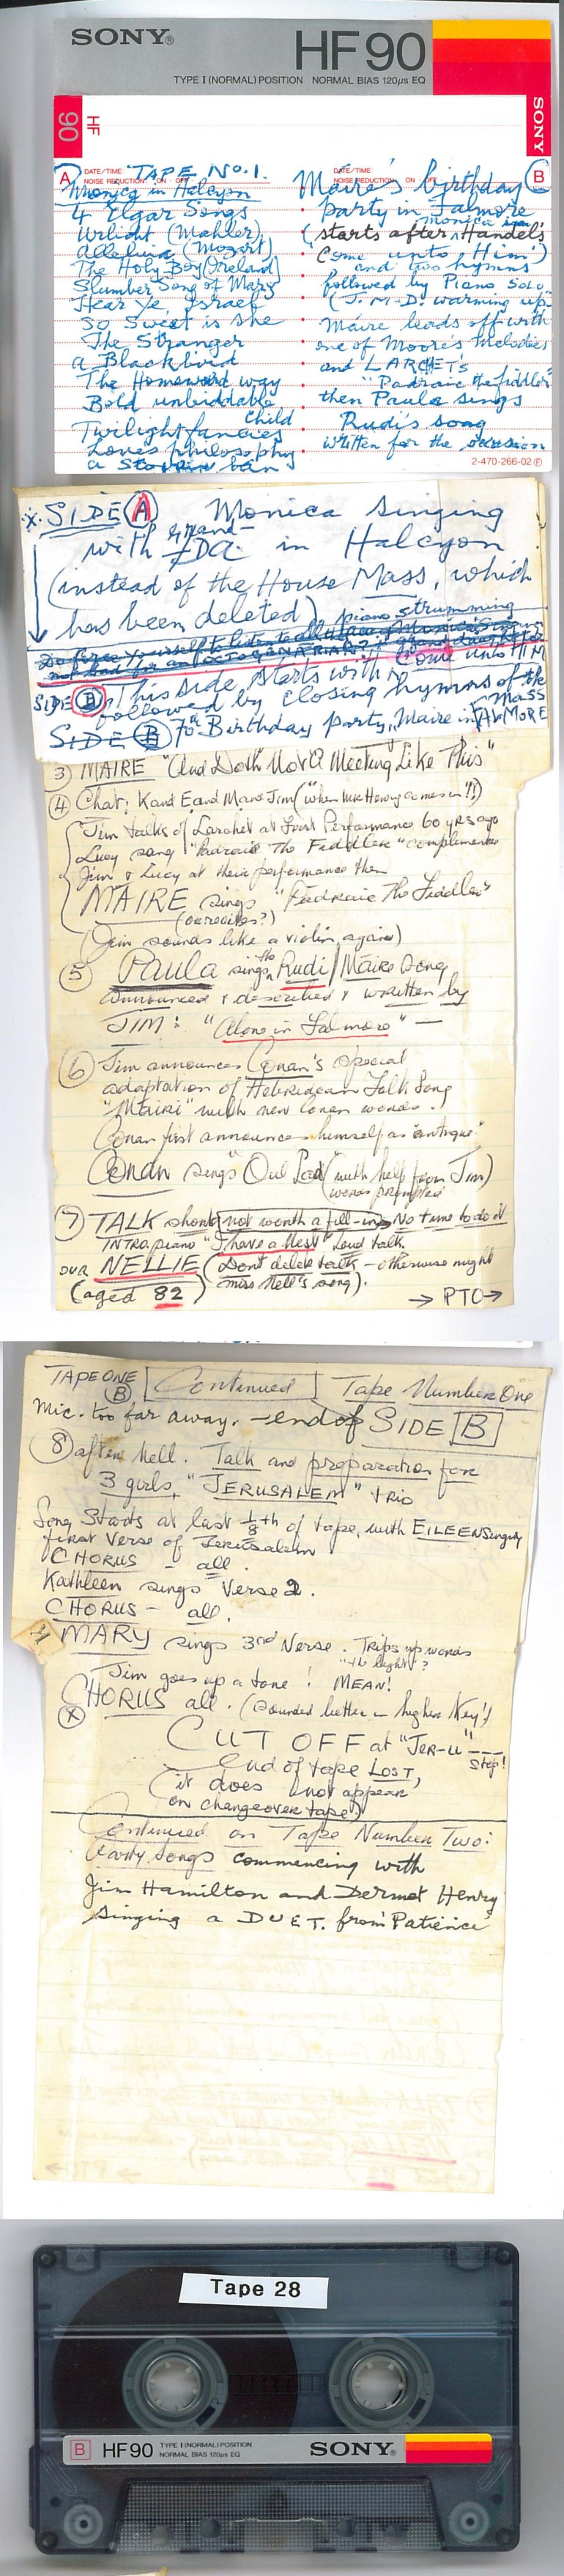 SONY®
HF90
TYPE I (NORMAL) POSITION NORMAL BIAS 120µs EQ
HF 90
SONY
A DATE/TIME: NOISE REDUCTION: ON OFF
TAPE No. 1.
Monica in Halcyon
4 Elgar Songs
Urlicht (Mahler)
Alleluia (Mozart)
The Holy Boy (Ireland)
Slumber Song of Mary
Hear Ye, Israel
So Sweet is she
The Stranger
a Blackbird
The Homeward way
Bold unbiddable
Child
Twilight fancies
Loves philosophy
a
B DATE/TIME: NOISE REDUCTION: ON OFF
Máire's birthday
party in Talmore
(starts after Monica Handel's
Come unto Him)
and two hymns
followed by Piano Solo
(J. M-D. warming up.
Máire leads off with
one of Moore's Melodies
and LARCHET's
"Padraic the fiddler"
then Paula sings
Rudi's song
written for the occasion
2-470-266-02 Ⓟ
X. SIDE A Monica singing
with grand- in Halcyon
(instead of the House Mass, which
has been deleted) piano strumming
not bad for an OCTOGENARIAN
SIDE B This side starts with Come unto HIM
followed by closing hymns of the Mass
SIDE B 70th Birthday party, Maire in TALMORE
3) MAIRE "And Doth Not a Meeting Like This"
4) Chat: K and E and M and Jim ("when Mr Henry comes in"!)
Jim talks of Larchet at First Performance 60 yrs ago
Lucy sang "Padraic The Fiddler" compliments
Jim & Lucy at their performance then
MAIRE sings "Padraic The Fiddler"
(or recites?)
(Jim sounds like a violin, again)
5) Paula sings the Rudi/Maire Song
announced & described & written by
JIM: "Alone in Talmore" —
6) Jim announces Conan's special
adaptation of Hebridean Folk Song
"Mairi" with new Conan words.
Conan first announces himself as "antique"
Conan sings "Oul Pad" (with help from Jim)
words prompted
7) TALK short not worth a fill-in No time to do it
INTRO. piano "I have a " Loud talk.
OUR NELLIE (Don't delete talk – otherwise might
(aged 82) miss Nell's song).
→ PTO →
TAPE ONE B Continued Tape Number One
Mic. too far away. – end of SIDE B
8) after Nell. Talk and preparation for
3 girls, "JERUSALEM" trio
Song Starts at last 1/8th of tape, with EILEEN singing
first Verse of Jerusalem
CHORUS – all.
Kathleen sings Verse 2.
CHORUS – all.
MARY sings 3rd Verse. Trips up words
Jim goes up a tone! MEAN!
CHORUS all. (sounded better in higher Key!)
X CUT OFF at "JER-U" --- Stop!
end of tape LOST,
(it does not appear
on changeover tape)
Continued on Tape Number Two:
Party Songs commencing with
Jim Hamilton and Dermot Henry
singing a DUET. from "Patience"
Tape 28
B HF90 TYPE I (NORMAL) POSITION NORMAL BIAS 120µs EQ SONY®